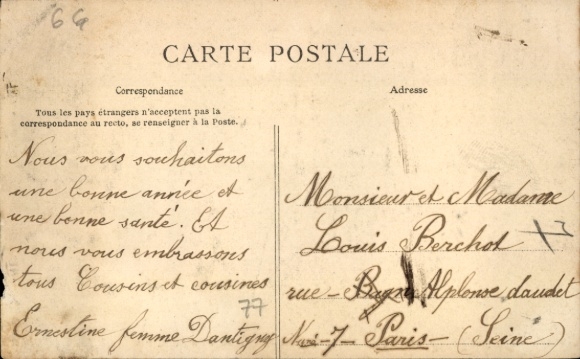 66
CARTE POSTALE
Correspondance
Tous les pays étrangers n'acceptent pas la
correspondance au recto, se renseigner à la Poste.
Nous vous souhaitons
une bonne année et
une bonne santé. Et
nous vous embrassons
tous Cousins et cousines
77
Ernestine femme Dantigny
Adresse
Monsieur et Madame
Louis Berchot
rue - Alplonse daudet
7 - Paris - (Seine)